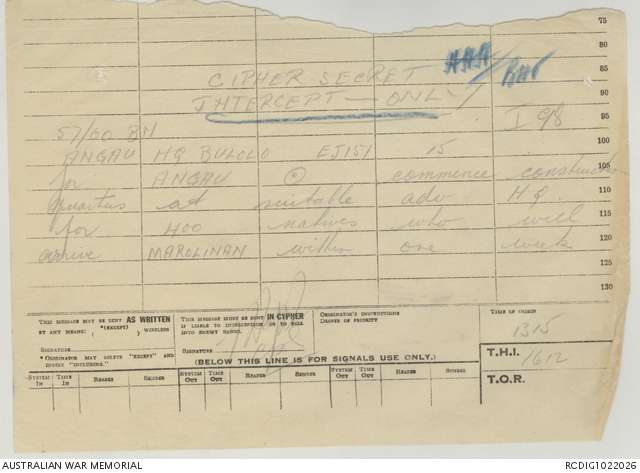 75
80
85
90
95
100
105
110
115
120
125
130
CIPHER SECRET AAA
INTERCEPT — ONLY
I 98
57/60 BN
ANGAU HQ BULOLO EJ151 15
for ANGAU commence construction
quarters at suitable adv HQ
for 400 natives who will
arrive MAROLINAN within one week
THIS MESSAGE MAY BE SENT AS WRITTEN
BY ANY MEANS (EXCEPT) WIRELESS
SIGNATURE
*ORIGINATOR MAY DELETE "EXCEPT" AND
INVERT "INCLUDING."
THIS MESSAGE MUST BE SENT IN CYPHER
IS LIABLE TO INTERCEPTION OR TO FALL
INTO ENEMY HANDS.
SIGNATURE
ORIGINATOR'S INSTRUCTIONS
DEGREE OF PRIORITY
TIME OF ORIGIN
1315
(BELOW THIS LINE IS FOR SIGNALS USE ONLY.)
T.H.I. 1612
T.O.R.
SYSTEM IN TIME IN READER SENDER SYSTEM OUT TIME OUT READER SENDER SYSTEM OUT TIME OUT READER SENDER
AUSTRALIAN WAR MEMORIAL
RCDIG1022026